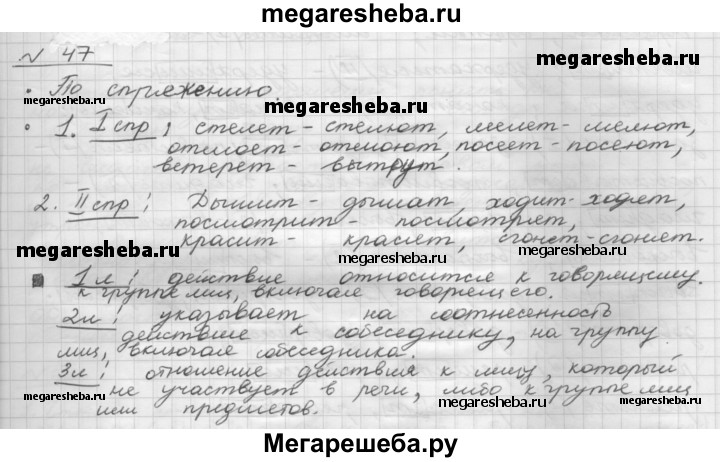 megaresheba.ru
№ 47
megaresheba.ru
• По спряжению.
megaresheba.ru
megaresheba.ru
• 1. I спр: стелет - стелют, мелет - мелют,
отмоет - отмоют, посеет - посеют,
вытерет - вытрут.
megaresheba.ru
2. II спр: Дышит - дышат, ходит - ходят,
посмотрит - посмотрят,
красит - красят, сгонит - сгонят.
megaresheba.ru
megaresheba.ru
1 л: действие относится к говорящему.
к группе лиц, включая говорящего.
2 л: указывает на соотнесенность
действие к собеседнику, на группу
лиц, включая собеседника.
megaresheba.ru
3 л: отношение действия к лицу, который
не участвует в речи, либо к группе лиц
или предметов.
megaresheba.ru
megaresheba.ru
Мегарешеба.ру